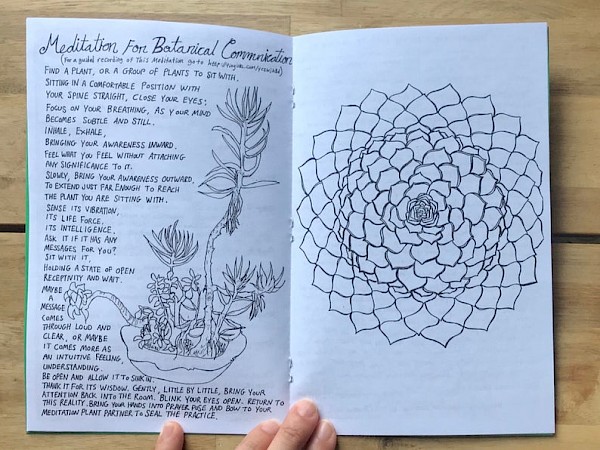 Meditation For Botanical Communication
(For a guided recording of This Meditation go to
FIND A PLANT, OR A GROUP OF PLANTS TO SIT WITH.
SITTING IN A COMFORTABLE POSITION WITH
YOUR SPINE STRAIGHT, CLOSE YOUR EYES:
FOCUS ON YOUR BREATHING, AS YOUR MIND
BECOMES SUBTLE AND STILL.
INHALE, EXHALE,
BRINGING YOUR AWARENESS INWARD.
FEEL WHAT YOU FEEL WITHOUT ATTACHING
ANY SIGNIFICANCE TO IT.
SLOWLY, BRING YOUR AWARENESS OUTWARD,
TO EXTEND JUST FAR ENOUGH TO REACH
THE PLANT YOU ARE SITTING WITH.
SENSE ITS VIBRATION,
ITS LIFE FORCE.
ITS INTELLIGENCE.
ASK IT IF IT HAS ANY
MESSAGES FOR YOU?
SIT WITH IT,
HOLDING A STATE OF OPEN
RECEPTIVITY AND WAIT.
MAYBE
A
MESSAGE
COMES
THROUGH LOUD AND
CLEAR, OR MAYBE
IT COMES MORE AS
AN INTUITIVE FEELING,
UNDERSTANDING.
BE OPEN AND ALLOW IT TO SINK IN.
THANK IT FOR ITS WISDOM. GENTLY, LITTLE BY LITTLE, BRING YOUR
ATTENTION BACK INTO THE ROOM. BLINK YOUR EYES OPEN. RETURN TO
THIS REALITY. BRING YOUR HANDS INTO PRAYER POSE AND BOW TO YOUR
MEDITATION PLANT PARTNER TO SEAL THE PRACTICE.